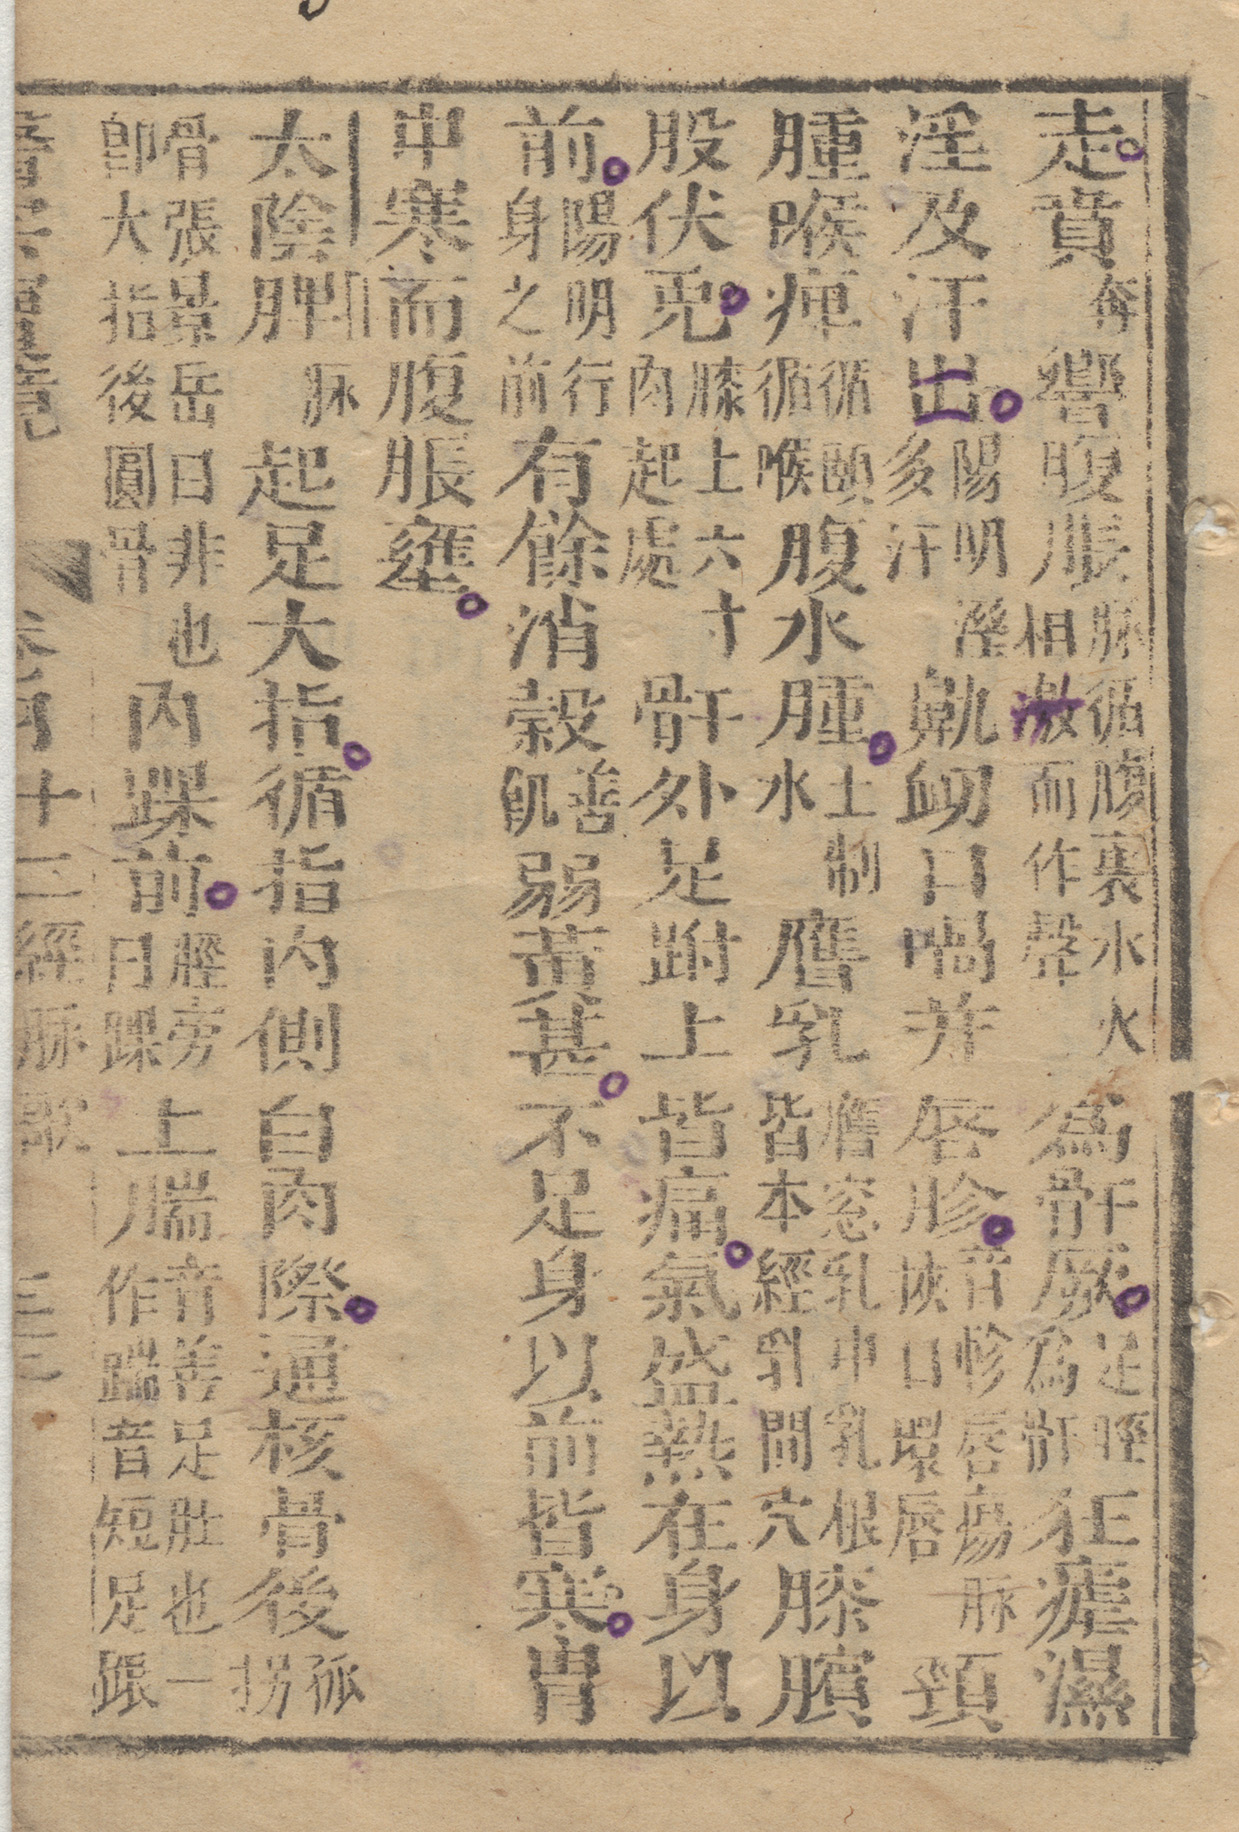 走賁奔響腹脹脉循腹裏水火相激而作聲為骭厥足脛為骭狂瘧濕
淫及汗出陽明溼多汗鼽衂口喎并唇胗音軫唇瘍脉挾口環唇頸
腫喉痺循頤循喉腹水腫土制水膺乳膺窓乳中乳根皆本經乳間穴膝臏
股伏兎膝上六寸肉起處骭外足跗上皆痛氣盛熱在身以
前陽明行身之前有餘消穀善飢弱黃甚不足身以前皆寒胃
中寒而腹脹壅
太陰脾脉起足大指循指內側白肉際過核骨後孤拐
骨張景岳曰非也即大指後圓骨內踝前脛旁曰踝上腨音善足肚也一作踹音短足跟
卷首十二經脉歌 三三